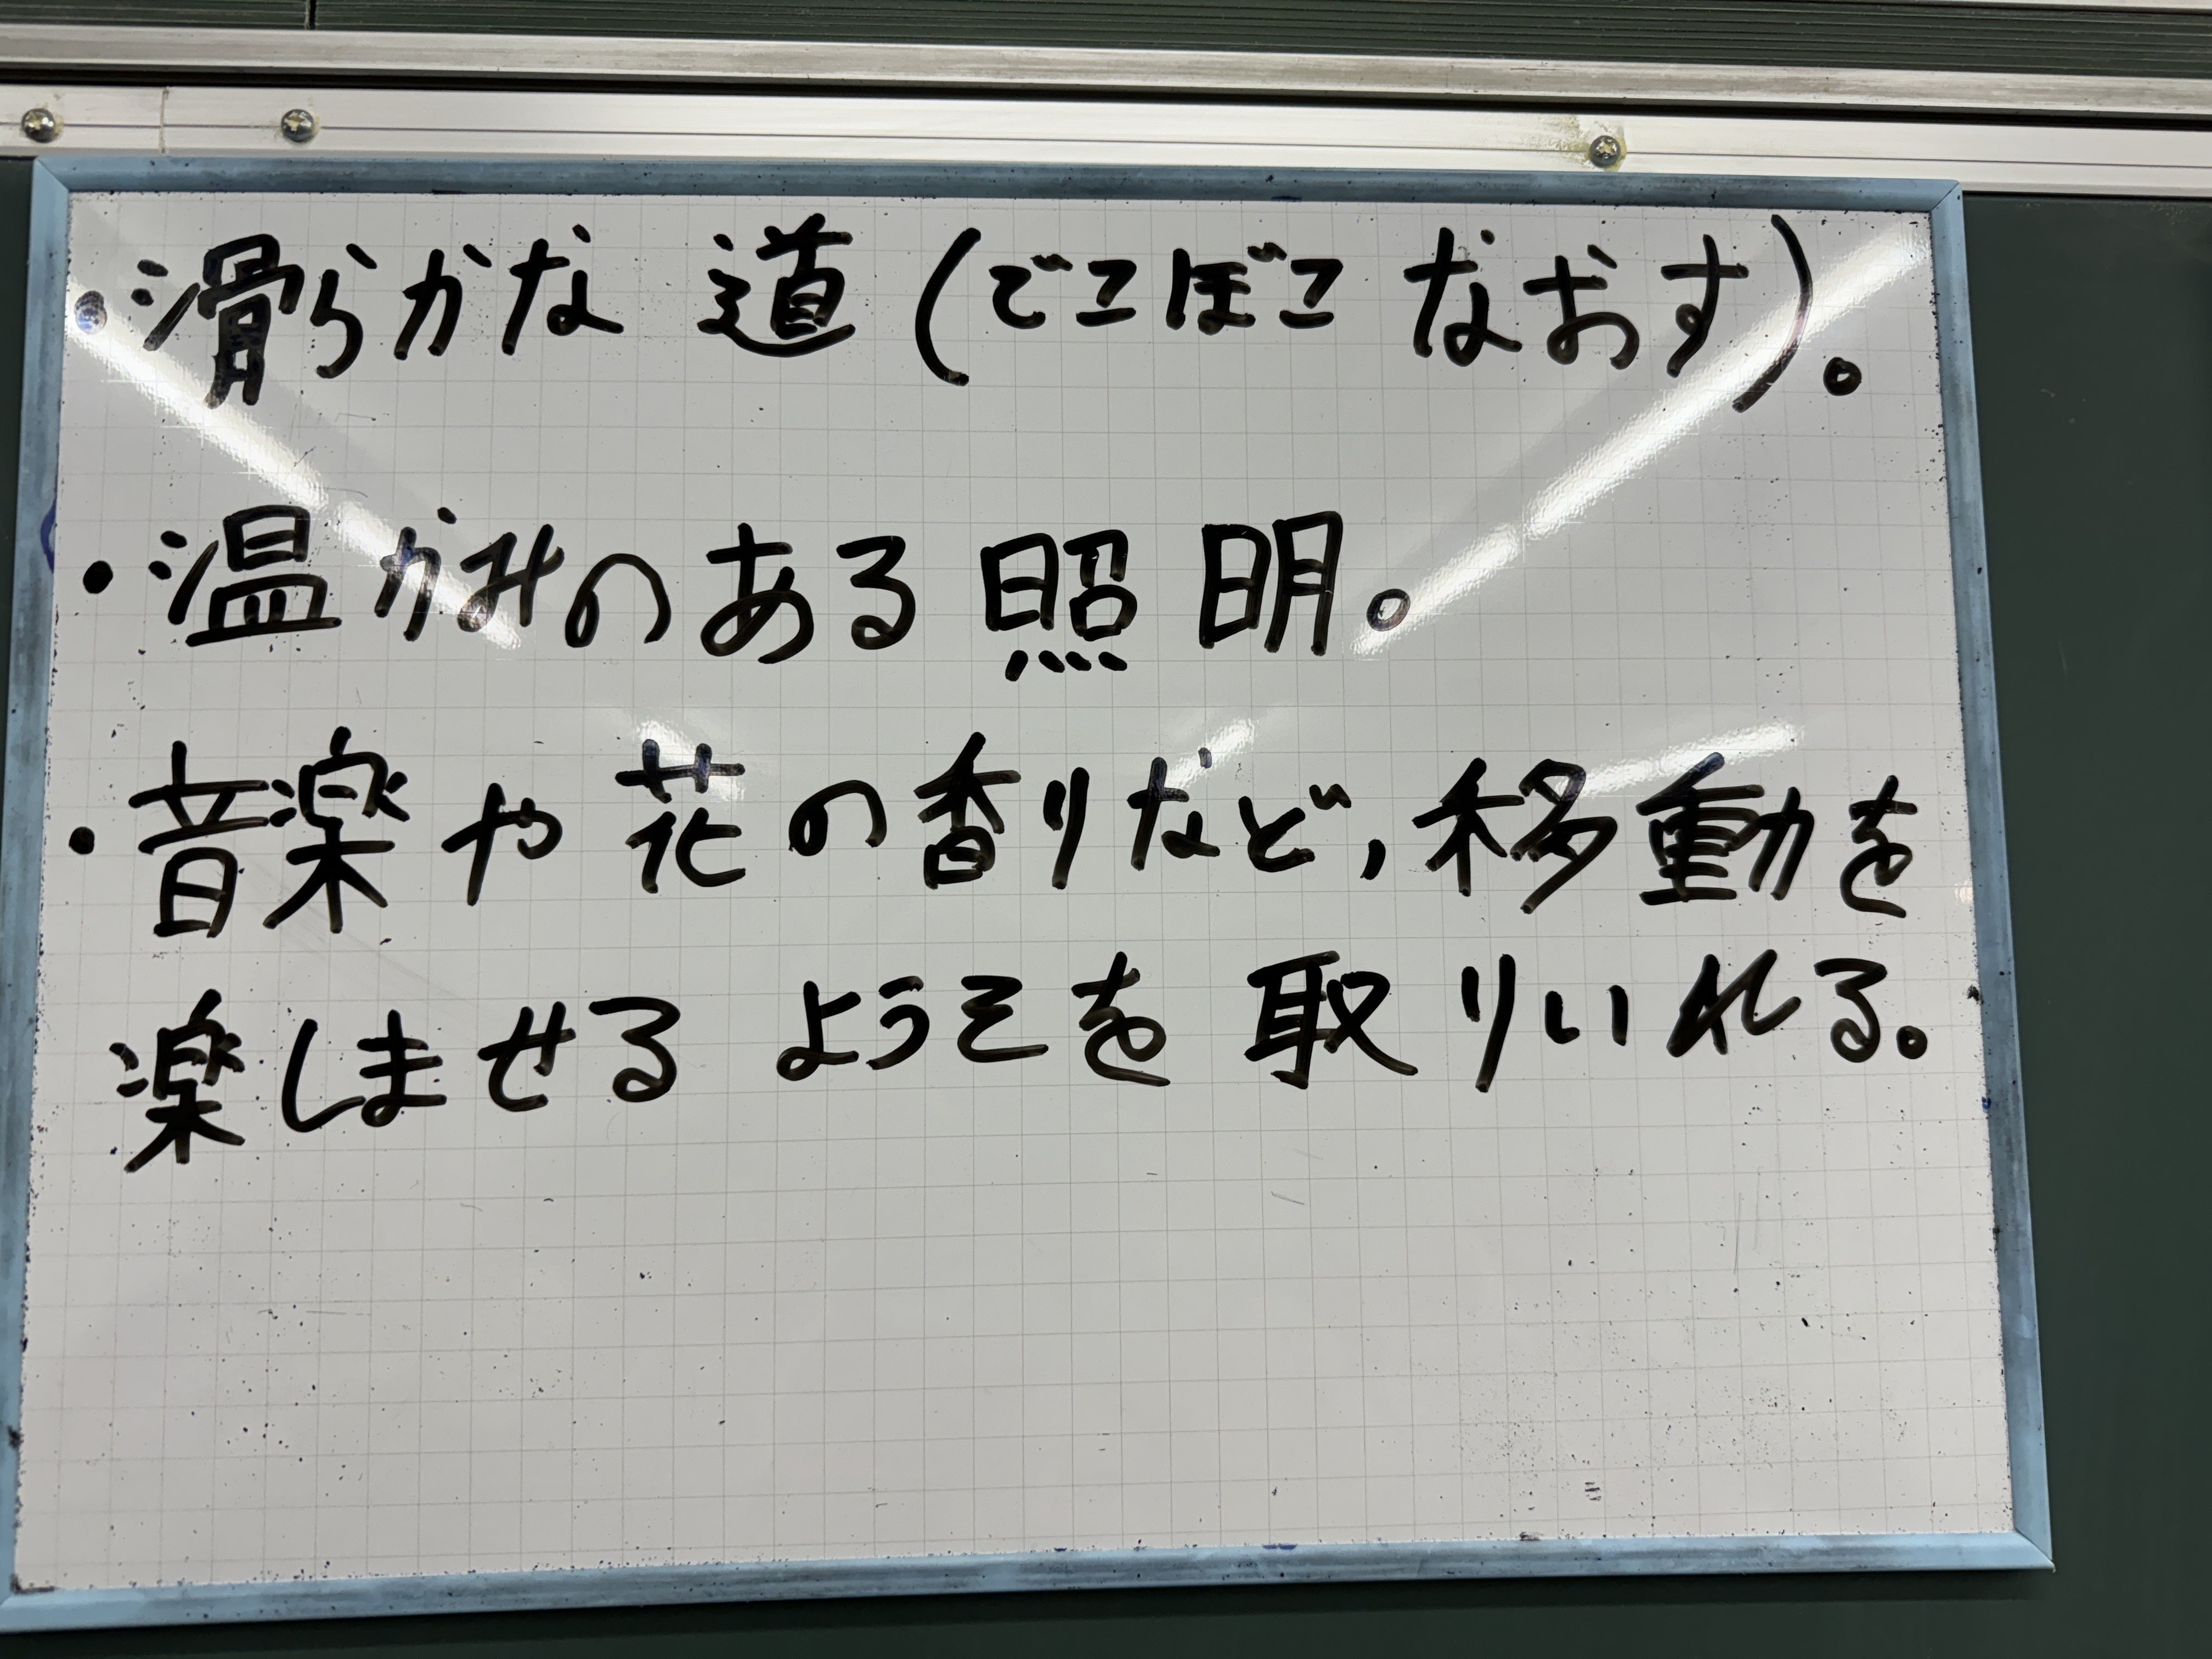 ・滑らかな道(でこぼこなおす)。
・温かみのある照明。
・音楽や花の香りなど,移動を
楽しませるようそを取りいれる。